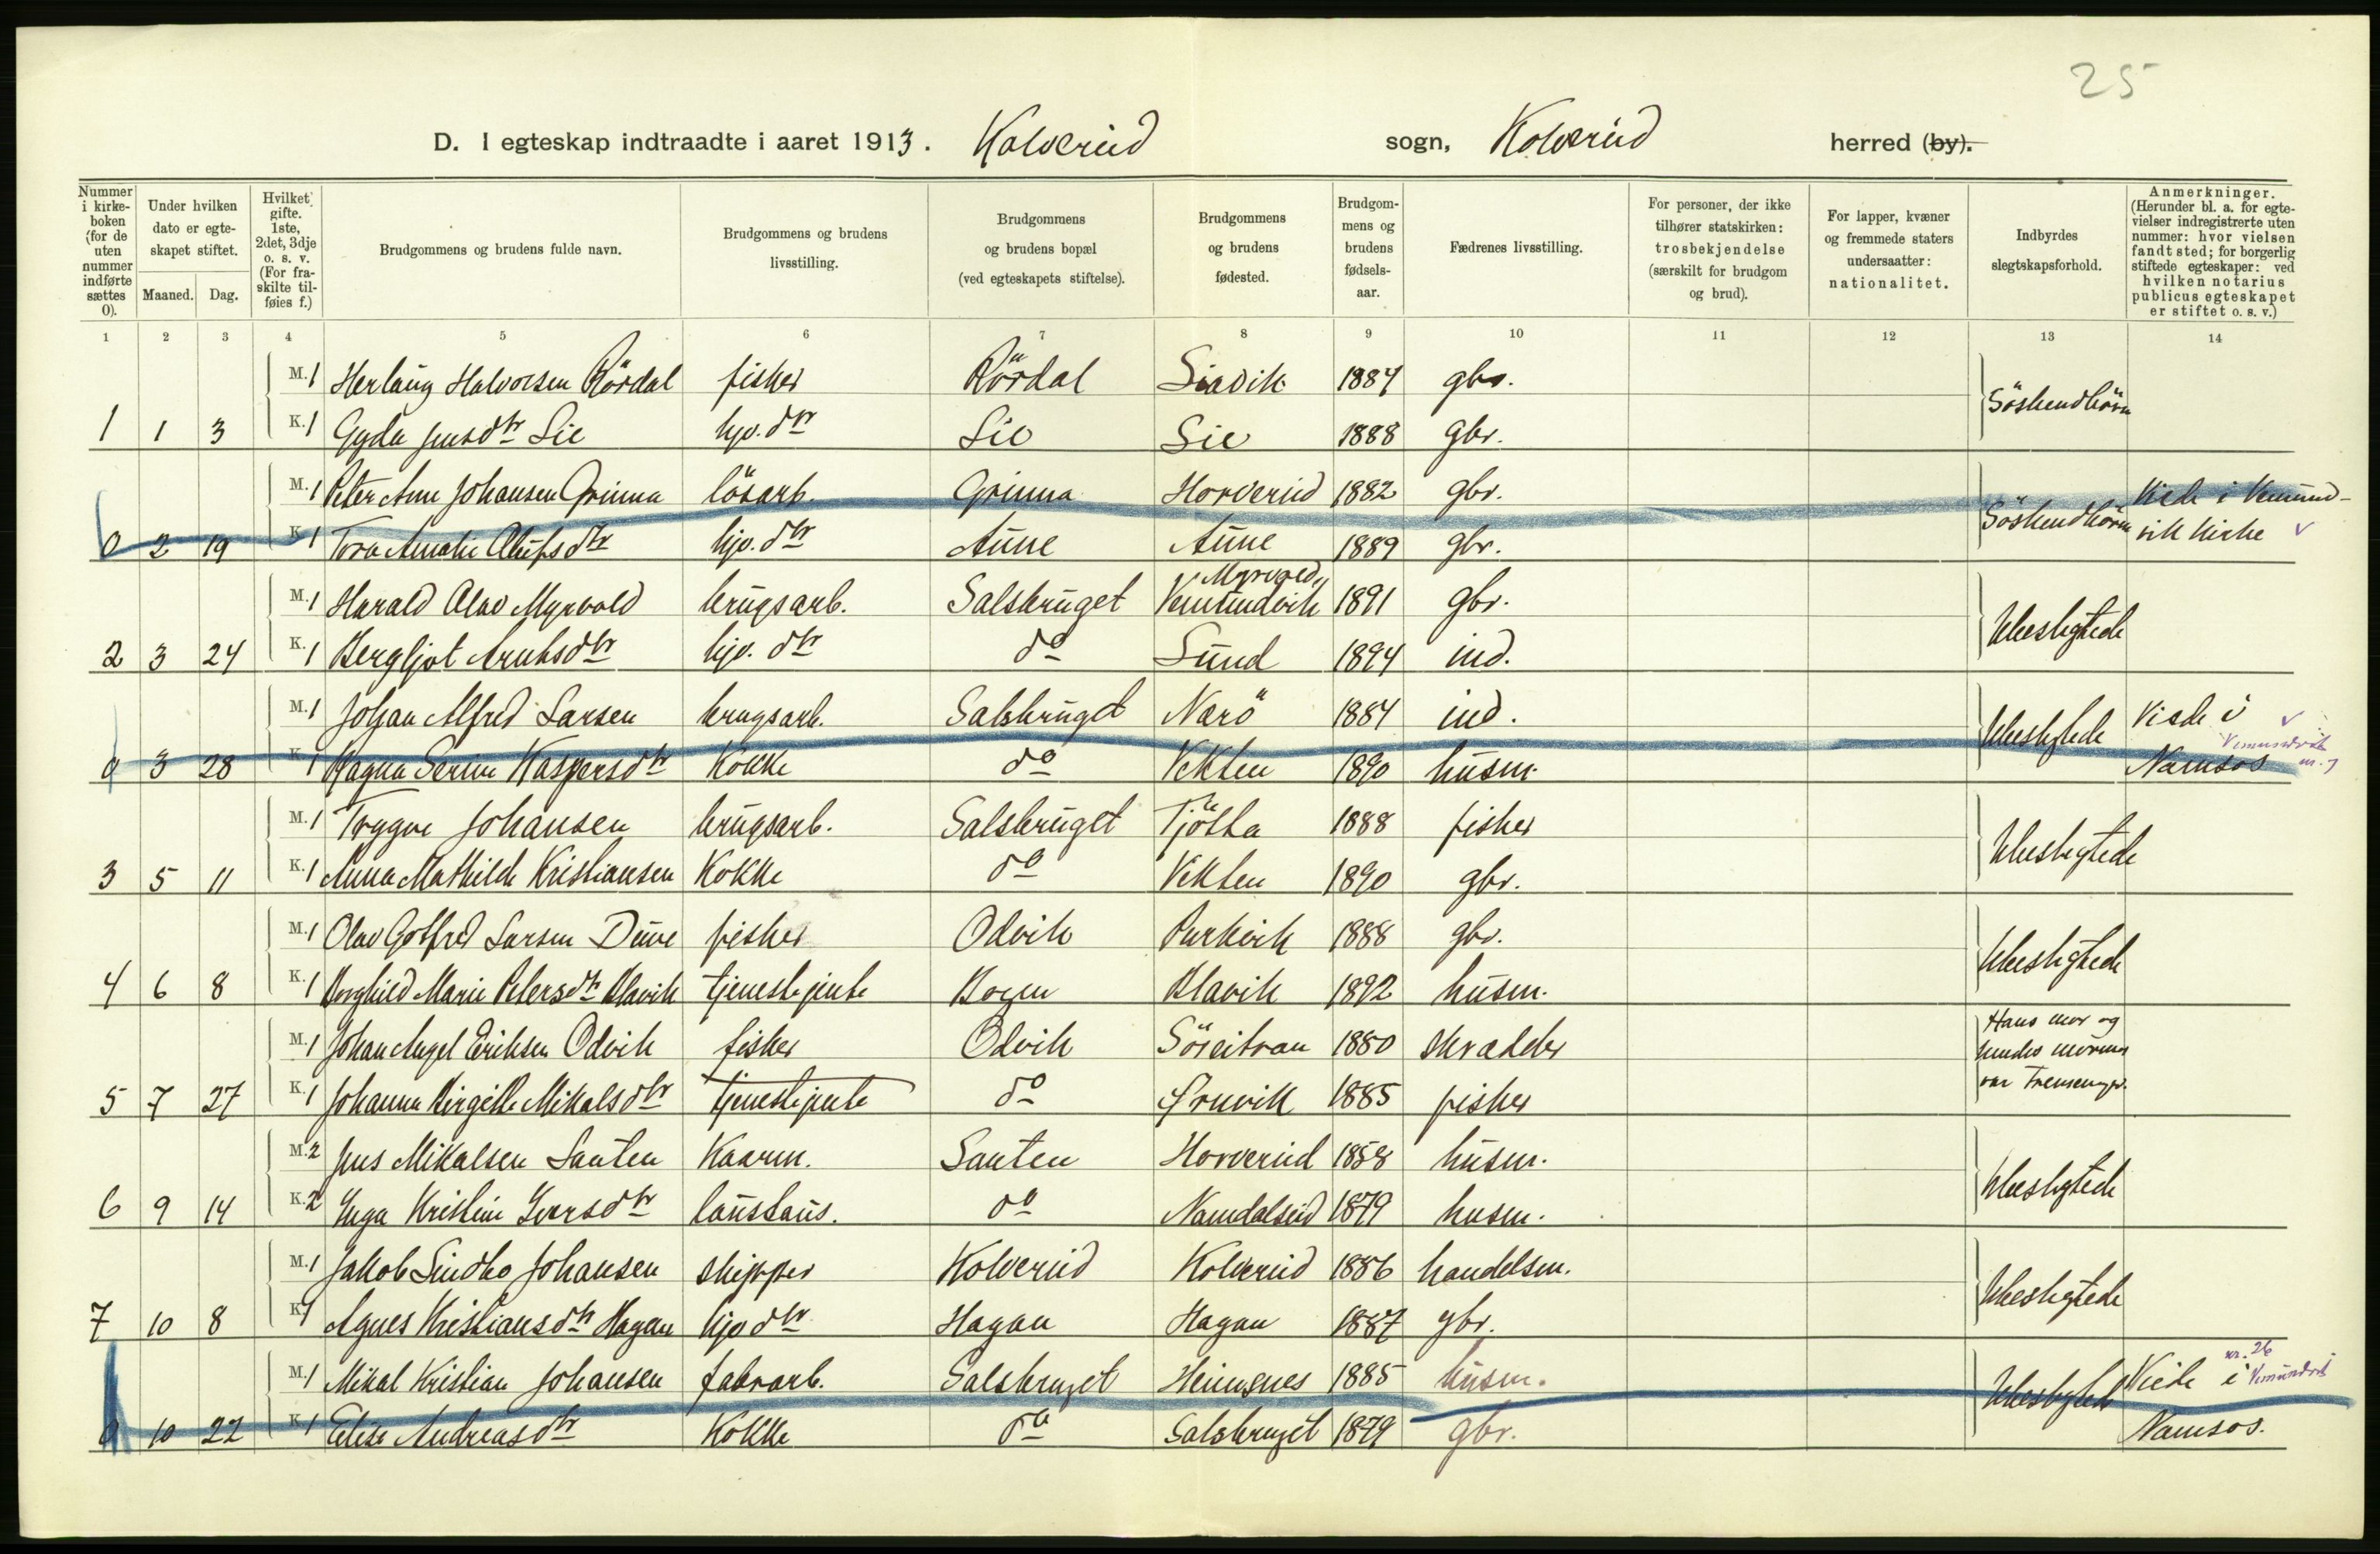 25
D. I egteskap indtraadte i aaret 1913. Kolvereid sogn, Kolvereid herred (by).
Nummer i kirkeboken (for de uten nummer indførte sættes 0).
Under hvilken dato er egteskapet stiftet.
Maaned. Dag.
Hvilket gifte. 1ste, 2det, 3dje o. s. v. (For fraskilte tilføies f.)
Brudgommens og brudens fulde navn.
Brudgommens og brudens livsstilling.
Brudgommens og brudens bopæl (ved egteskapets stiftelse).
Brudgommens og brudens fødested.
Brudgommens og brudens fødselsaar.
Fædrenes livsstilling.
For personer, der ikke tilhører statskirken: trosbekjendelse (særskilt for brudgom og brud).
For lapper, kvæner og fremmede staters undersaatter: nationalitet.
Indbyrdes slegtskapsforhold.
Anmerkninger. (Herunder bl. a. for egtevielser indregistrerte uten nummer: hvor vielsen fandt sted; for borgerlig stiftede egteskaper: ved hvilken notarius publicus egteskapet er stiftet o. s. v.)
1 2 3 4 5 6 7 8 9 10 11 12 13 14
M. 1 Herlaug Halvorsen Rördal fisker Rördal 1884 gbr. Söskendbörn
1 1 3 K. 1 Gyda Jensdtr Lie hjv. dtr Lie Lie 1888 gbr.
M. 1 Peter Arne Johansen Grinna lösarb. Grinna Horvereid 1882 gbr. Söskendbörn Viede i Vemund-
0 2 19 K. 1 Tora Amalie Olufsdtr hjv. dtr Aune Aune 1889 gbr. vik kirke
M. 1 Harald Olav Myrvold brugsarb. Salsbruget Myrvold, Vemundvik 1891 gbr. Ubeslegtede
2 3 24 K. 1 Bergljot dtr hjv. dtr do Sund 1894 ind.
M. 1 Johan Alfred Larsen brugsarb. Salsbruget Nærö 1884 ind. Ubeslegtede Viede i Vemundvik
0 3 28 K. 1 Ragna Serine Kaspersdtr Kokke do Vikten 1890 husm. Namsos
M. 1 Trygve Johansen brugsarb. Salsbruget Tjötta 1888 fisker Ubeslegtede
3 5 11 K. 1 Anna Mathilde Kristiansen Kokke do Vikten 1890 gbr.
M. 1 Olav Gotfred Larsen Duve fisker Odvik 1888 gbr. Ubeslegtede
4 6 8 K. 1 Borghild Marie Petersdtr Blavik tjenestejente Bogen Blavik 1892 husm.
M. 1 Johan Angel Eriksen Odvik fisker Odvik Söreitran 1880 skrædder Hans mor og
hendes mormor
var Tremenger.
5 7 27 K. 1 Johanna Birgitte Mikalsdtr tjenestejente do 1885 fisker
M. 2 Jens Mikalsen Sauten Kaarm. Sauten Horvereid 1858 husm. Ubeslegtede
6 9 14 K. 2 Inga Kristine Iversdtr do Namdalseid 1879 husm.
M. 1 Jakob Lindbo Johansen skipper Kolvereid Kolvereid 1886 handelsm. Ubeslegtede
7 10 8 K. 1 Agnes Kristiansdtr Hagan hjv dtr Hagan Hagan 1887 gbr.
M. 1 Mikal Kristian Johansen fabrarb. Salsbruget Heimsnes 1885 husm. Ubeslegtede Viede i nr. 26 Vemundvik
0 10 22 K. 1 Elise Andreasdtr Kokke do Salsbruget 1879 gbr. Namsos.